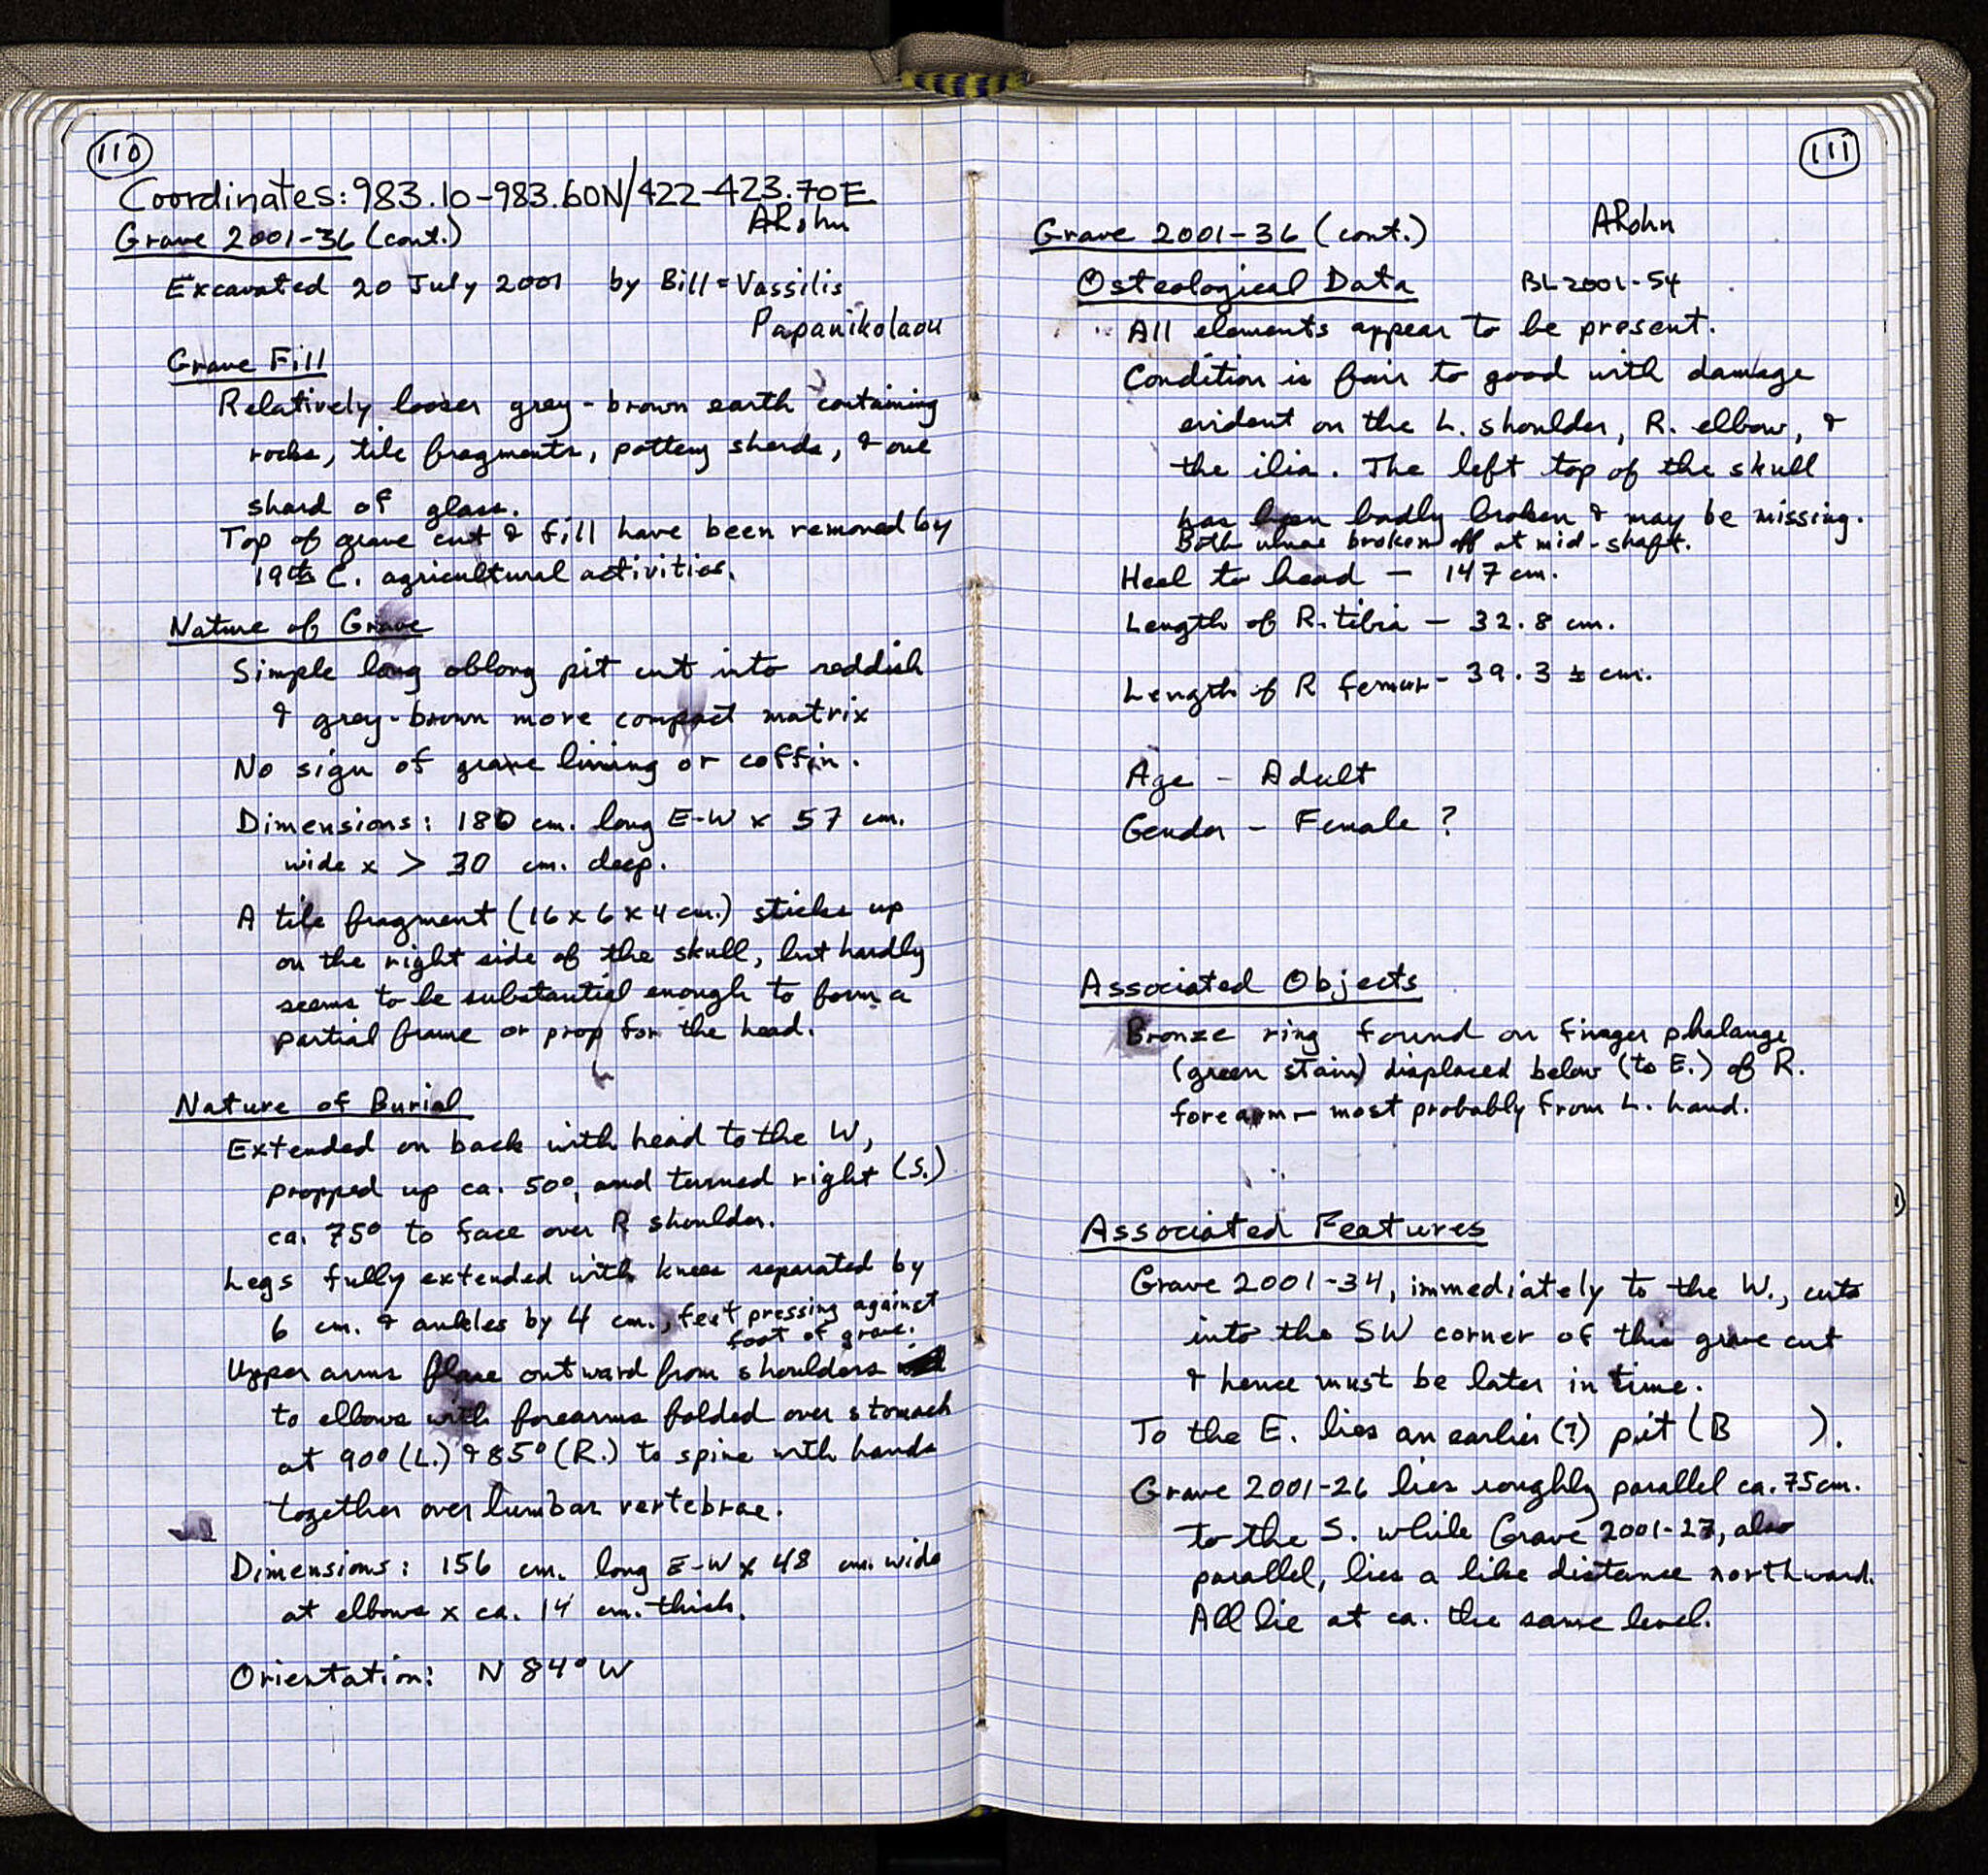 110
Coordinates: 983.10-983.60N/422-423.70E
ARohn
Grave 2001-36 (cont.)
Excavated 20 July 2001 by Bill = Vassilis
Papanikolaou
Grave Fill
Relatively looser grey-brown earth containing
rocks, tile fragments, pottery sherds, & one
shard of glass.
Top of grave cut & fill have been removed by
19th C. agricultural activities.
Nature of Grave
Simple long oblong pit cut into reddish
& grey-brown more compact matrix
No sign of grave lining or coffin.
Dimensions: 180 cm. long E-W x 57 cm.
wide x > 30 cm. deep.
A tile fragment (16 x 6 x 4 cm.) sticks up
on the right side of the skull, but hardly
seems to be substantial enough to form a
partial frame or prop for the head.
Nature of Burial
Extended on back with head to the W,
propped up ca. 50°, and turned right (S.)
ca. 75° to face over R shoulder.
Legs fully extended with knees separated by
6 cm. & ankles by 4 cm., feet pressing against
foot of grave.
Upper arms flare outward from shoulders
to elbows with forearms folded over stomach
at 90° (L.) & 85° (R.) to spine with hands
together over lumbar vertebrae.
Dimensions: 156 cm. long E-W x 48 cm. wide
at elbows x ca. 14 cm. thick.
Orientation: N 84° W
111
ARohn
Grave 2001-36 (cont.)
Osteological Data BL 2001-54
All elements appear to be present.
Condition is fair to good with damage
evident on the L. shoulder, R. elbow, &
the ilia. The left top of the skull
has been badly broken & may be missing.
Both ulnae broken off at mid-shaft.
Heel to head - 147 cm.
Length of R. tibia - 32.8 cm.
Length of R femur - 39.3 ± cm.
Age - Adult
Gender - Female ?
Associated Objects
Bronze ring found on finger phalange
(green stain) displaced below (to E.) of R.
forearm - most probably from L. hand.
Associated Features
Grave 2001-34, immediately to the W., cuts
into the SW corner of this grave cut
& hence must be later in time.
To the E. lies an earlier (?) pit (B ).
Grave 2001-26 lies roughly parallel ca. 75 cm.
to the S. while Grave 2001-27, also
parallel, lies a like distance northward.
All lie at ca. the same level.